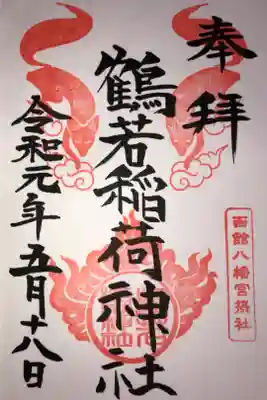 奉拝
鶴若稲荷神社
令和元年五月十八日
函館八幡宮摂社